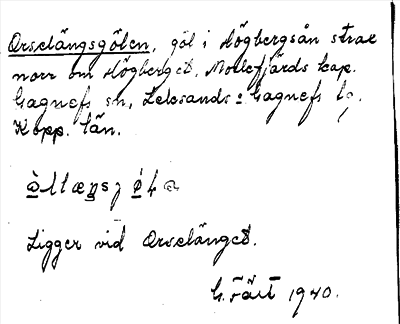 Orselängsgölen, göl i Högbergsån strax
norr om Högberget. Mockfjärds kap.
Gagnefs sn, Leksands o Gagnefs tg,
Kopp. län.
Ligger vid Orselänget.
G. 1940.